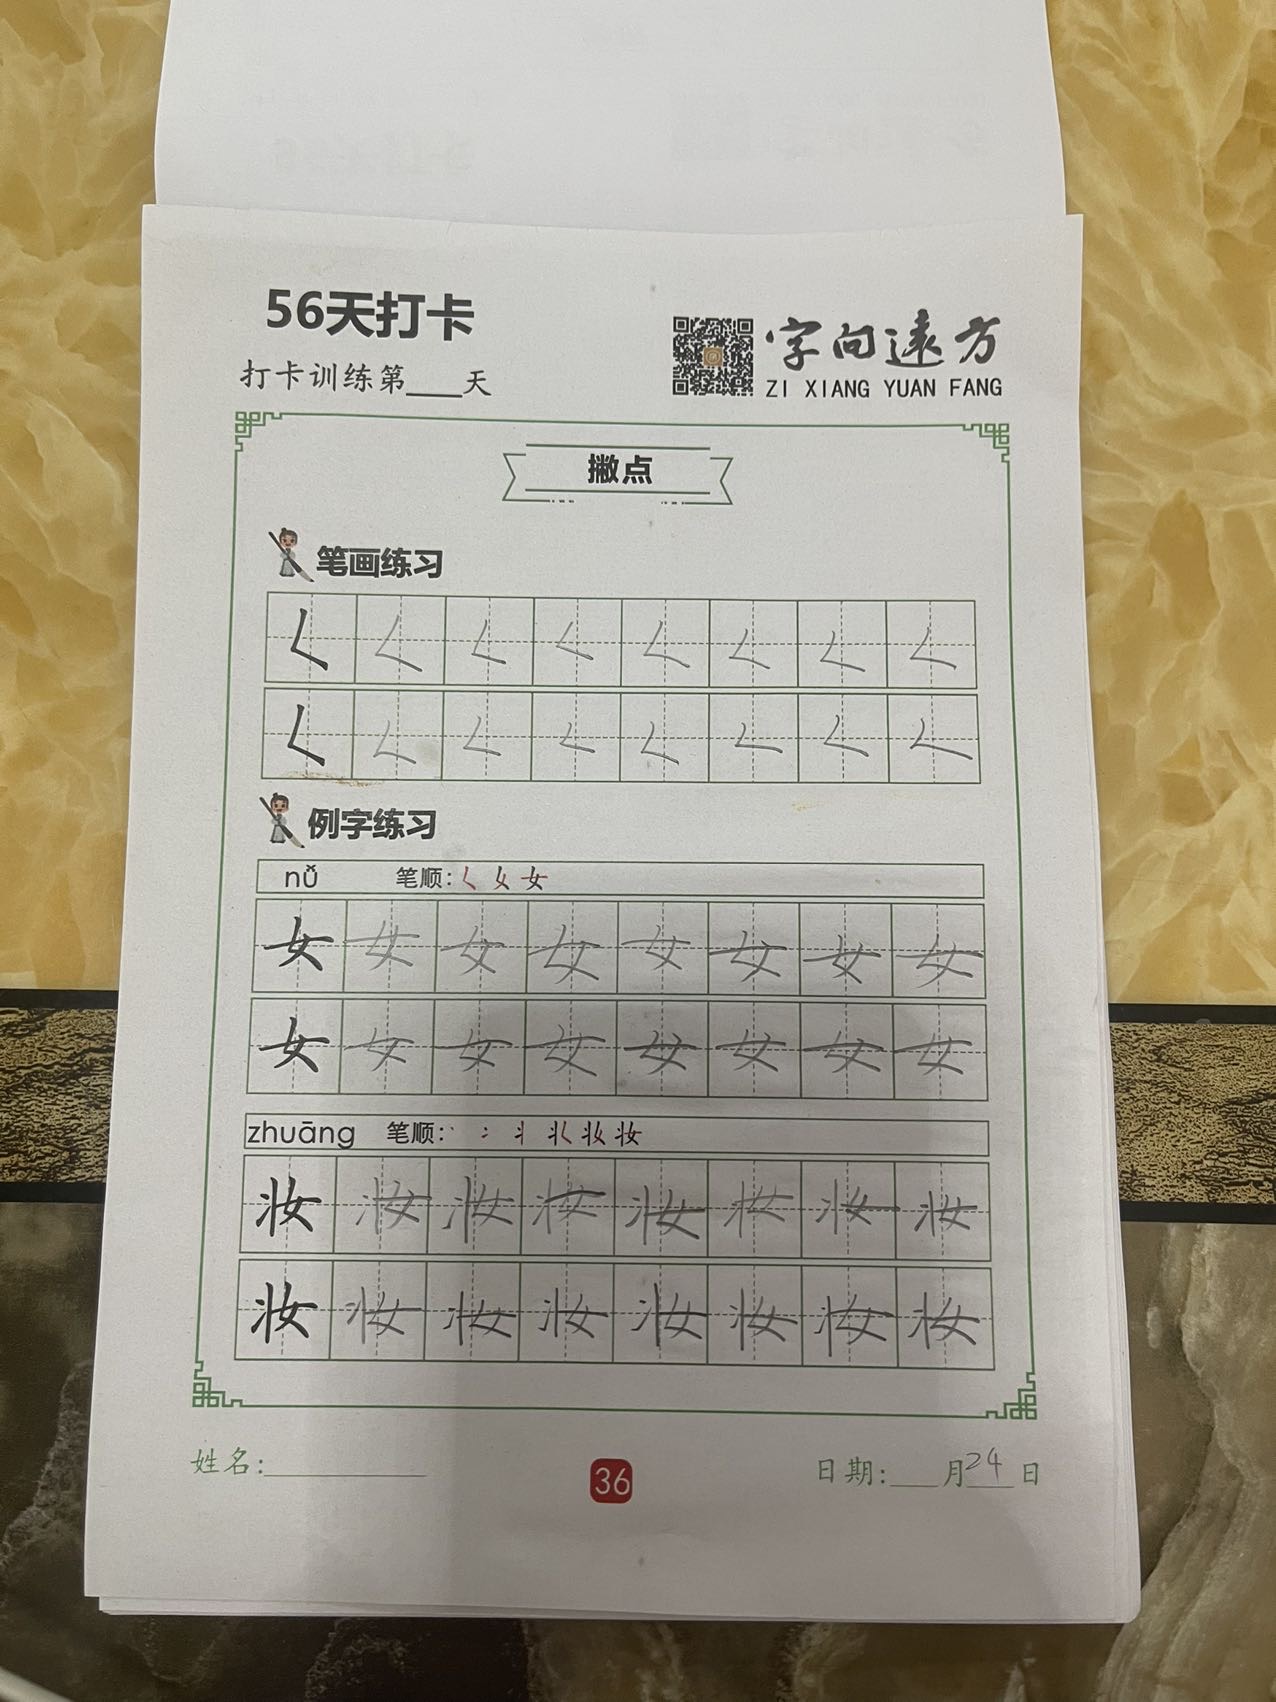 56天打卡
打卡训练第___天
字向远方
ZI XIANG YUAN FANG
撇点
笔画练习
𡿨 𡿨 𡿨 𡿨 𡿨 𡿨 𡿨 𡿨
𡿨 𡿨 𡿨 𡿨 𡿨 𡿨 𡿨 𡿨
例字练习
nǚ 笔顺: 𡿨 女 女
女 女 女 女 女 女 女 女
女 女 女 女 女 女 女 女
zhuāng 笔顺: 丶 冫 丬 妆 妆
妆 妆 妆 妆 妆 妆 妆 妆
妆 妆 妆 妆 妆 妆 妆 妆
姓名:
36
日期:___月24日